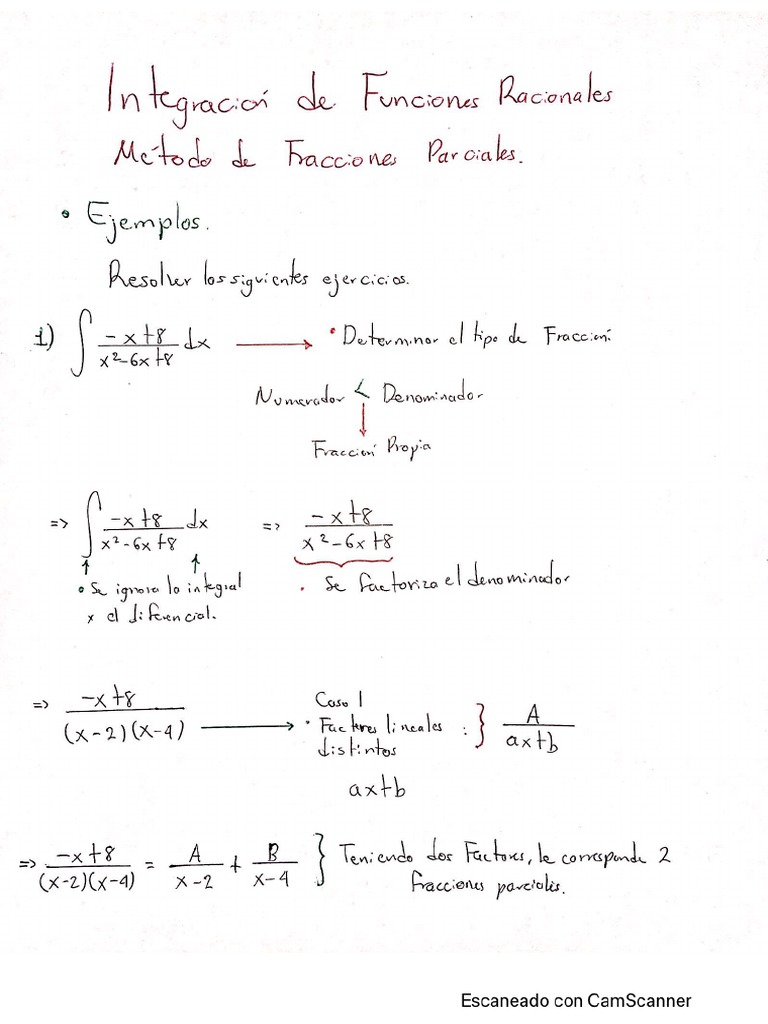 Integración de Funciones Racionales
Método de Fracciones Parciales.
• Ejemplos.
Resolver los siguientes ejercicios.
1) ∫ (-x+8)/(x²-6x+8) dx ⟶ • Determinar el tipo de Fracción:
Numerador < Denominador
↓
Fracción Propia
=> ∫ (-x+8)/(x²-6x+8) dx => (-x+8)/(x²-6x+8)
• Se ignora la integral
x el diferencial.
• Se factoriza el denominador
=> (-x+8)/((x-2)(x-4)) ⟶ Caso 1
• Factores lineales
distintos
: } A/(ax+b)
ax+b
=> (-x+8)/((x-2)(x-4)) = A/(x-2) + B/(x-4) } Teniendo dos Factores, le corresponde 2
fracciones parciales.
Escaneado con CamScanner